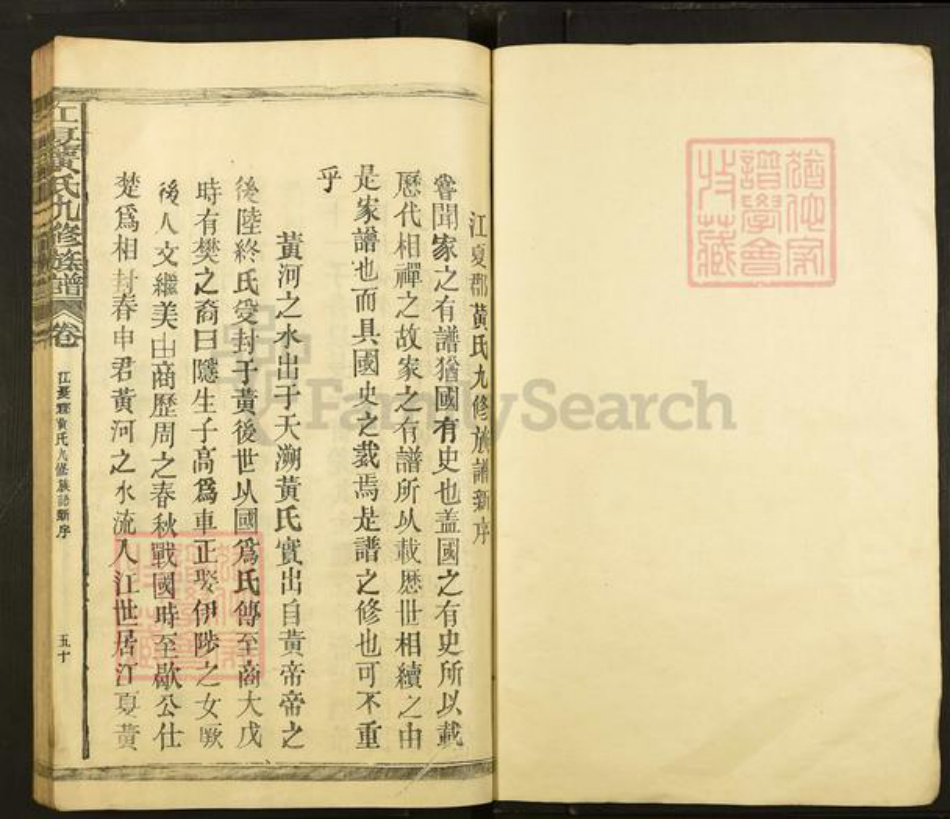 猶他家
譜學會
收藏
江夏郡黃氏九修族譜新序
嘗聞家之有譜猶國有史也盖國之有史所以載
歷代相禪之故家之有譜所以載歷世相續之由
是家譜也而具國史之裁焉是譜之修也可不重
乎
黃河之水出于天溯黃氏實出自黃帝帝之
後陸終氏受封于黃後世以國爲氏傳至商大戊
時有樊之裔曰隱生子高爲車正娶伊陟之女厥
後人文繼美由商歷周之春秋戰國時至歇公仕
楚爲相封春申君黃河之水流入江世居江夏黃
江夏黃氏九修族譜
卷
江夏郡黃氏九修族譜新序
五十
FamilySearch